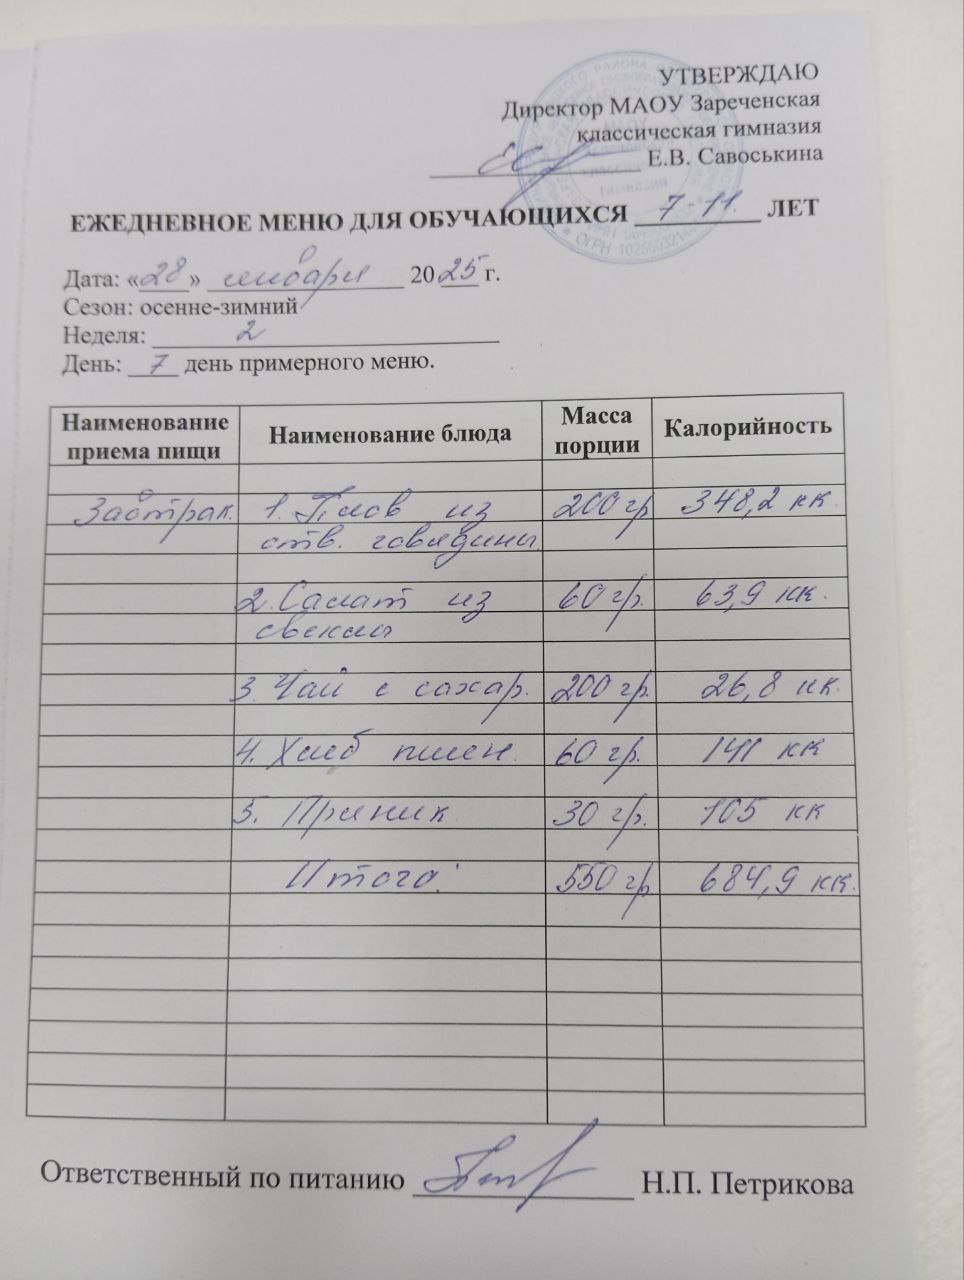 УТВЕРЖДАЮ
Директор МАОУ Зареченская
классическая гимназия
Е.В. Савоськина
ЕЖЕДНЕВНОЕ МЕНЮ ДЛЯ ОБУЧАЮЩИХСЯ 7-11. ЛЕТ
Дата: «28» января 2025 г.
Сезон: осенне-зимний
Неделя: 2
День: 7 день примерного меню.
Наименование приема пищи Наименование блюда Масса порции Калорийность
Завтрак 1. Плов из 200 гр 348,2 кк.
отв. говядины
2. Салат из 60 гр. 63,9 кк.
свеклы
3. Чай с сахар. 200 гр. 26,8 кк.
4. Хлеб пшен. 60 гр. 141 кк
5. Пряник 30 гр. 105 кк
Итого: 550 гр 684,9 кк.
Ответственный по питанию Н.П. Петрикова